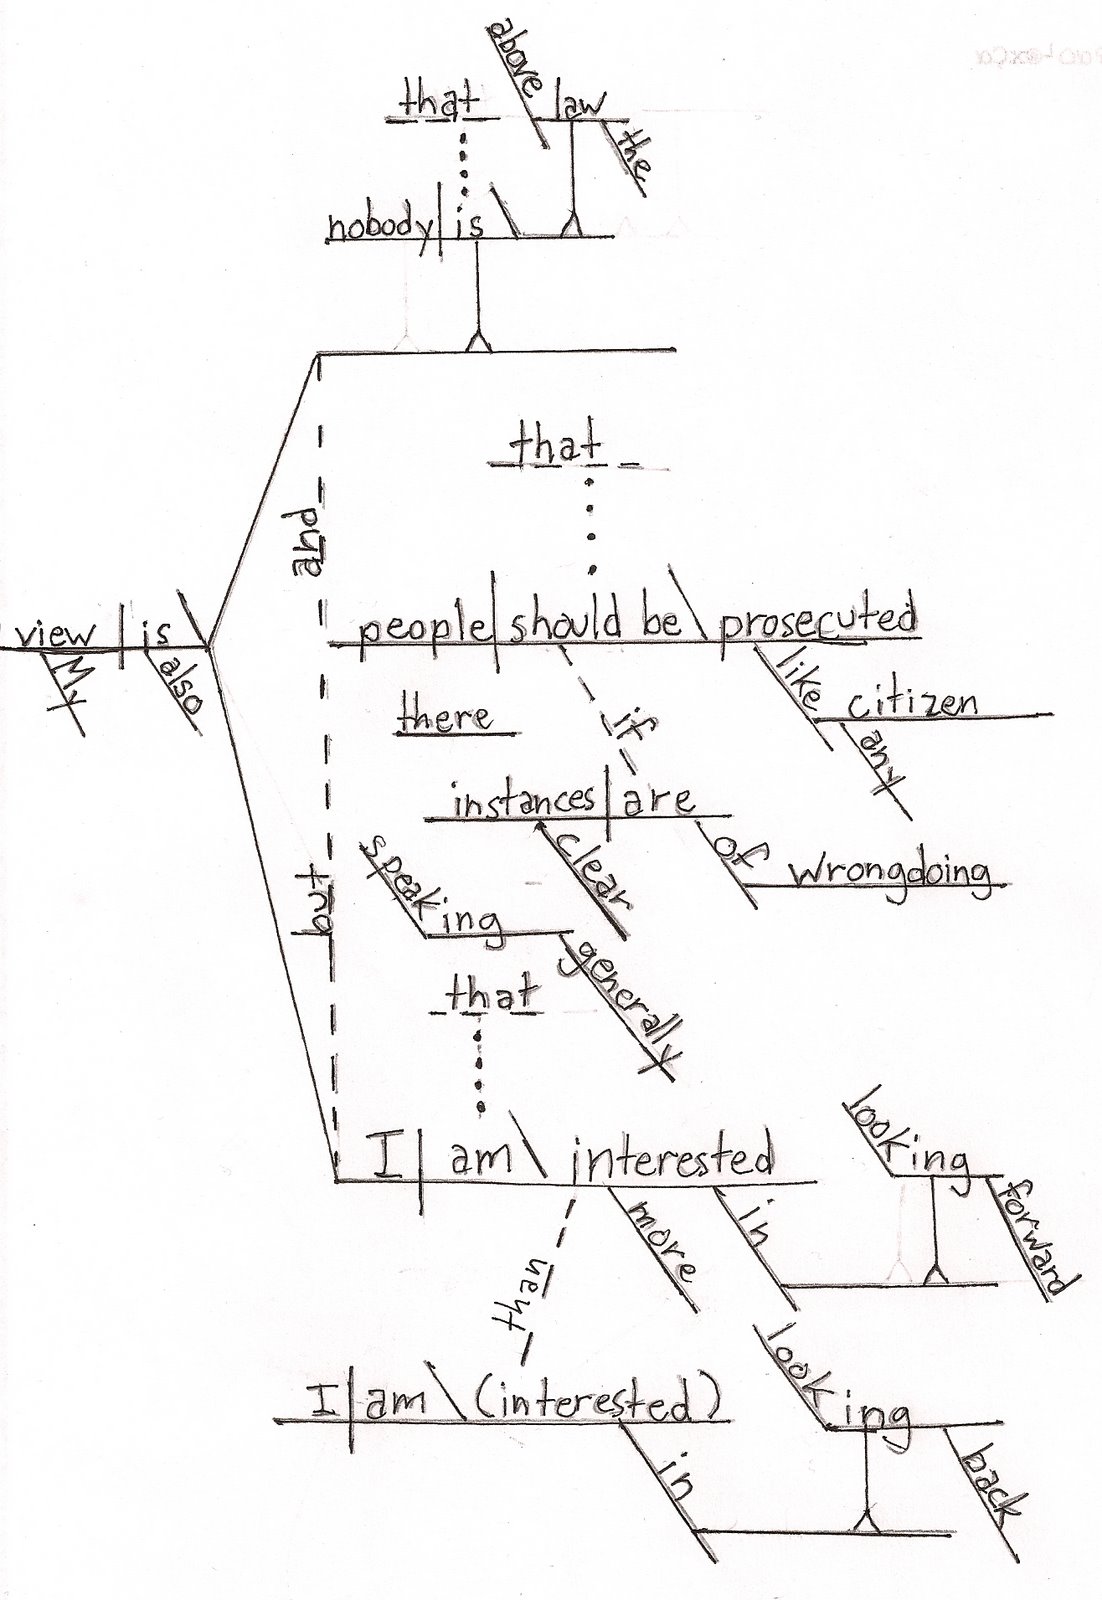 above
that
law
the
nobody is
that
and
people should be prosecuted
view is
My
also
like
citizen
any
there
if
instances are
clear
of
wrongdoing
speaking
generally
but
that
I am interested
looking
forward
more
in
than
I am (interested)
looking
back
in